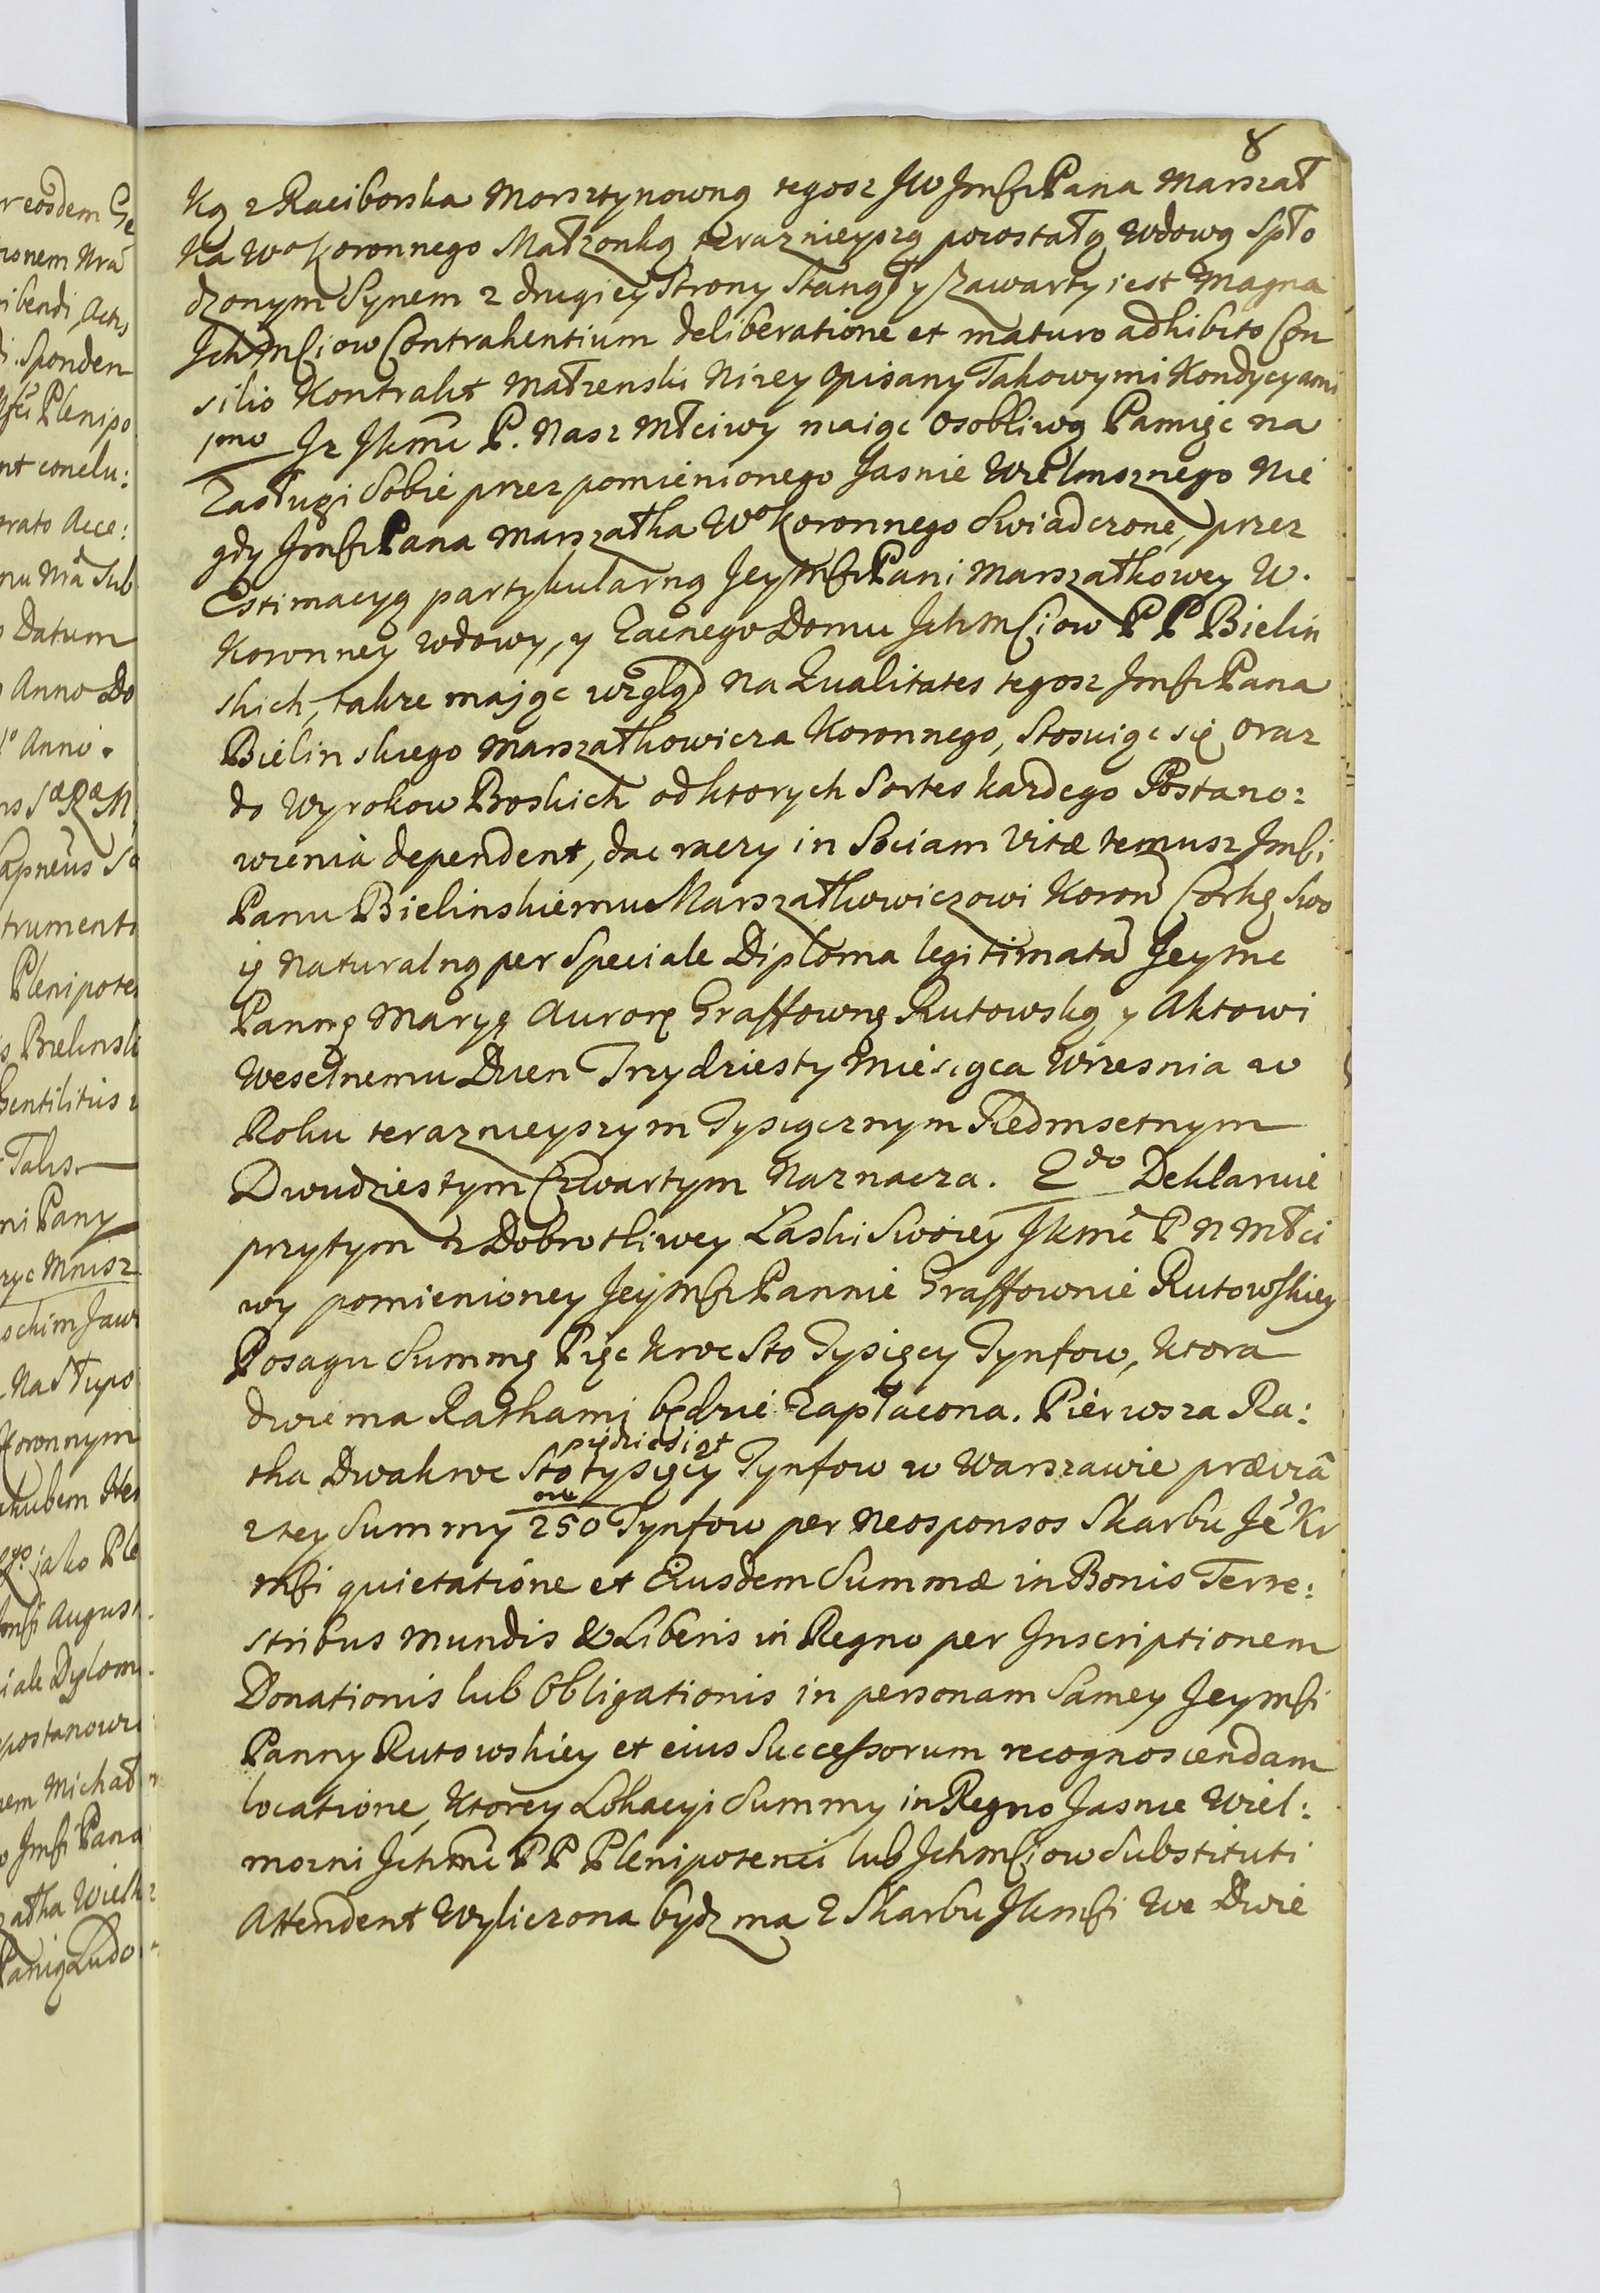 8
ką z Raciborska Morsztynowną tegosz JW Jmści Pana Marszał
ka Wo Koronnego Małżonką teraznieyszą pozostałą Wdową Spło
dzonym Synem z drugiey Strony Stanął y Zawarty iest Magna
Jchmściow Contrahentium deliberatione et maturo adhibito Con
silio Kontrakt Małżenski Nizey Opisany Takowymi Kondycyami
1mo Jż Jkmć P. Nasz Młciwy maiąc Osobliwą Pamięć na
Zasługi Sobie przez pomienionego Jasnie Wielmożnego Nie
gdy Jmści Pana Marszałka Wo Koronnego Swiadczone, przez
Estimacyą partykularną Jeymści Pani Marszałkowey W.
Koronney Wdowy, y Zacnego Domu Jchmściow P P Bielin
skich, także maiąc wzgląd na Qualitates tegosz Jmści Pana
Bielinskiego Marszałkowicza Koronnego, Stosuiąc się oraz
do Wyrokow Boskich od ktorych Sortes każdego Postano:
wienia dependent, dac raczy in Sociam Vitæ temusz Jmści
Panu Bielinskiemu Marszałkowiczowi Koron Corkę Swo
ię Naturalną per Speciale Diploma legitimatā Jeymć
Pannę Maryę Aurorę Graffownę Rutowską y Aktowi
Weselnemu Dzien Trzydziesty Miesiąca Wrzesnia w
Roku teraznieyszym Tysiącznym Siedmsetnym
Dwudziestym Czwartym Naznacza. 2do Deklaruie
przytym z Dobrotliwey Łaski Swoiey Jkmć P N Młci
wy pomienioney Jeymści Pannie Graffownie Rutowskiey
Posagu Summę Pięć kroć Sto Tysięcy Tynfow, ktora
dwiema Rathami będzie Zapłacona. Pierwsza Ra:
tha Dwakroć Sto pięćdziesiąt tysięcy Tynfow w Warszawie præviâ
z tey Summy 250 m Tynfow per Neosponsos Skarbu Jé Kr
mści quietatione et Eiusdem Summæ in Bonis Terre:
stribus mundis & Liberis in Regno per Inscriptionem
Donationis lub Obligationis in personam Samey Jeymści
Panny Rutowskiey et eius Successorum recognoscendam
locatione, ktorey Lokacyi Summy in Regno Jasnie Wiel:
możni Jchmć P P Plenipotenci lub Jchmściow Substituti
Attendent Wyliczona bydz ma z Skarbu Jkmści We Dwie